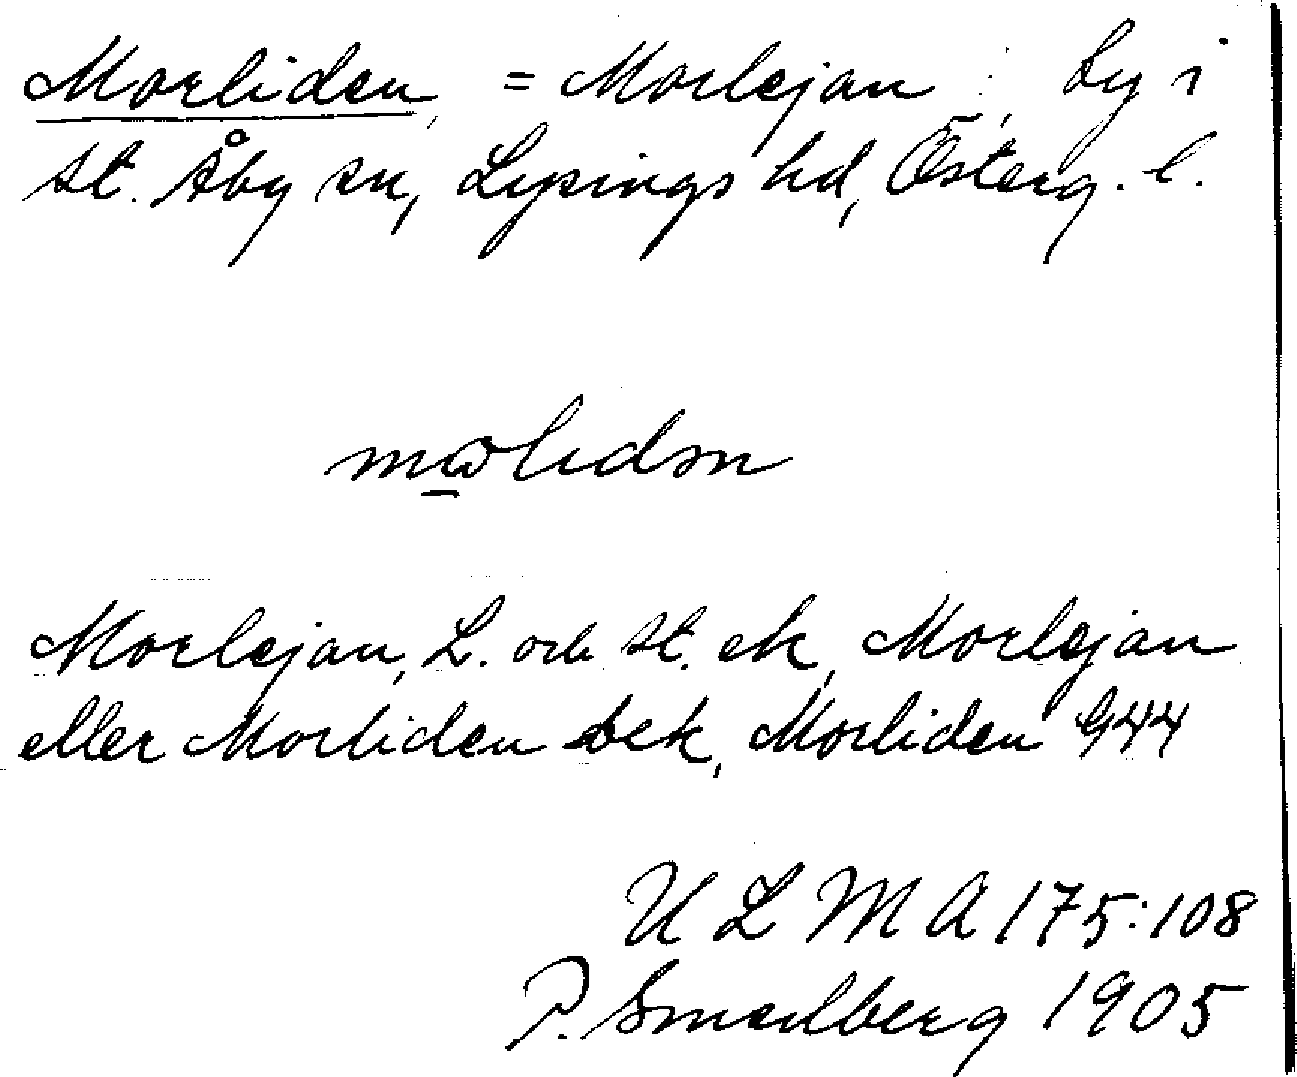 Morliden, = Morlejan; by i
St. Åby sn, Lysings hd, Österg. l.
Morlejan, L. och St. ek, Morlejan
eller Morliden bek, Morliden G44
U L M A 175:108
P. Smedberg 1905